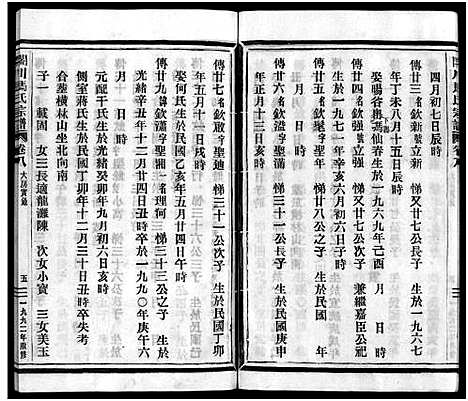 四月初七日辰時
傳廿三名欽新 悌又廿七公長子 生於一九六七
年丁未八月十五日辰時
娶暘谷冉馮仙香 生於一九六九年己酉
月 日 時 兼繼嘉臣公祀
傳廿四名欽強 立強 悌又廿七公次子
生於一九七一年辛亥九月初六日子時
傳廿五名欽 字聖 悌廿八公之子 生於民國 年
傳廿六名欽 字聖 悌三十一公長子 生於民國庚申
年正月十三日 時
傳廿七名欽 字聖廸 悌三十一公次子 生於民國丁卯
年五月十一日戌時
娶何氏生於民國乙亥年五月廿四日午時
傳廿九名欽瀟字聖 一名理何 悌三十三公之子
光緒辛丑年十二月廿四日丑時卒於一九九〇年庚午六
月 日 時
元配干氏生於光緒癸卯年九月初六日亥時
側室蔣氏生於民國丁卯年十二月三十日丑時卒失考
合塟橫林山坐北向南
子一 載固 女三長適龍灘陳 次女小寶 三女美玉
川馮氏宗譜 卷八 大房實錄
五
一九九二年